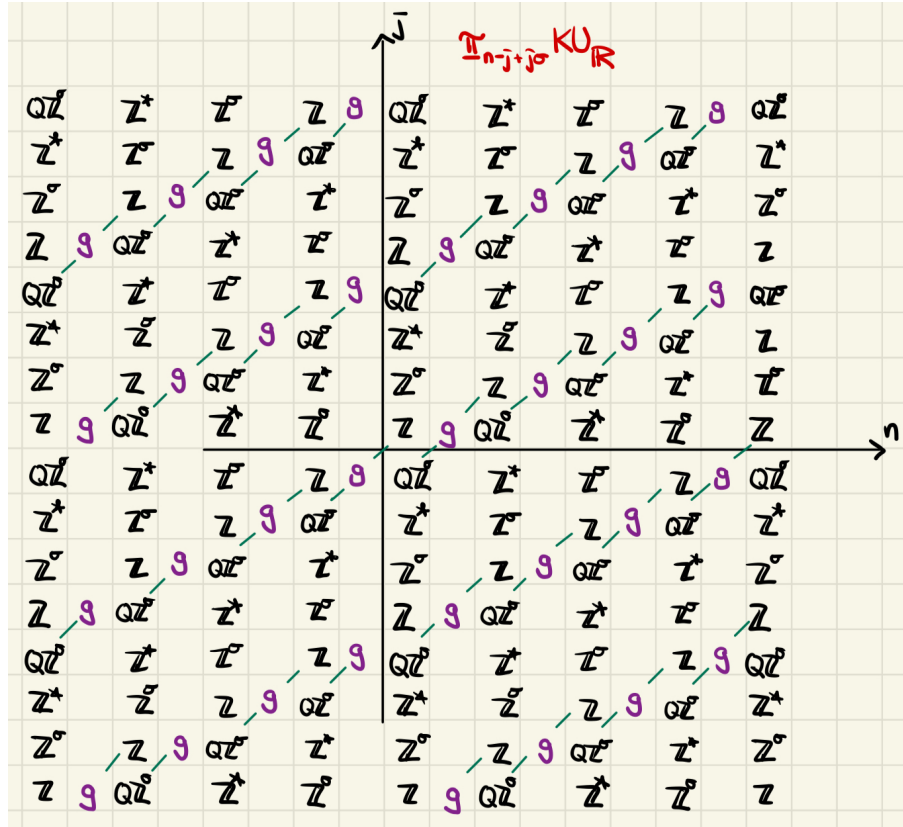 j
π̲_{n-j+jσ} KU_ℝ
Qℤ^σ ℤ* ℤ^σ ℤ g Qℤ^σ ℤ* ℤ^σ ℤ g Qℤ^σ
ℤ* ℤ^σ ℤ g Qℤ^σ ℤ* ℤ^σ ℤ g Qℤ^σ ℤ*
ℤ^σ ℤ g Qℤ^σ ℤ* ℤ^σ ℤ g Qℤ^σ ℤ* ℤ^σ
ℤ g Qℤ^σ ℤ* ℤ^σ ℤ g Qℤ^σ ℤ* ℤ^σ ℤ
Qℤ^σ ℤ* ℤ^σ ℤ g Qℤ^σ ℤ* ℤ^σ ℤ g Qℤ^σ
ℤ* ℤ^σ ℤ g Qℤ^σ ℤ* ℤ^σ ℤ g Qℤ^σ ℤ
ℤ^σ ℤ g Qℤ^σ ℤ* ℤ^σ ℤ g Qℤ^σ ℤ* ℤ^σ
ℤ g Qℤ^σ ℤ* ℤ^σ ℤ g Qℤ^σ ℤ* ℤ^σ ℤ
n
Qℤ^σ ℤ* ℤ^σ ℤ g Qℤ^σ ℤ* ℤ^σ ℤ g Qℤ^σ
ℤ* ℤ^σ ℤ g Qℤ^σ ℤ* ℤ^σ ℤ g Qℤ^σ ℤ*
ℤ^σ ℤ g Qℤ^σ ℤ* ℤ^σ ℤ g Qℤ^σ ℤ* ℤ^σ
ℤ g Qℤ^σ ℤ* ℤ^σ ℤ g Qℤ^σ ℤ* ℤ^σ ℤ
Qℤ^σ ℤ* ℤ^σ ℤ g Qℤ^σ ℤ* ℤ^σ ℤ g Qℤ^σ
ℤ* ℤ^σ ℤ g Qℤ^σ ℤ* ℤ^σ ℤ g Qℤ^σ ℤ*
ℤ^σ ℤ g Qℤ^σ ℤ* ℤ^σ ℤ g Qℤ^σ ℤ* ℤ^σ
ℤ g Qℤ^σ ℤ* ℤ^σ ℤ g Qℤ^σ ℤ* ℤ^σ ℤ